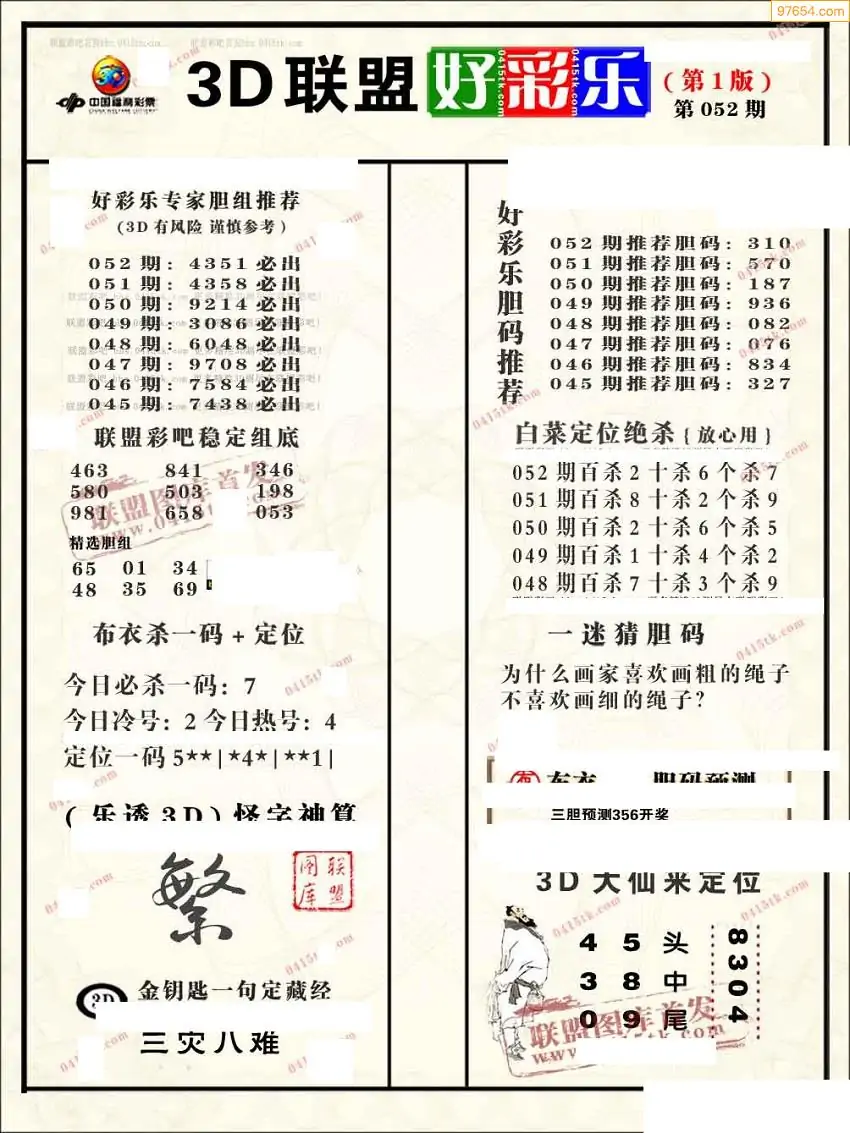 97654.com
中国福利彩票
CHINA WELFARE LOTTERY
3D联盟好彩乐
(第1版)
第052期
好彩乐专家胆组推荐
(3D有风险 谨慎参考)
052期: 4351必出
051期: 4358必出
050期: 9214必出
049期: 3086必出
048期: 6048必出
047期: 9708必出
046期: 7584必出
045期: 7438必出
联盟彩吧稳定组底
463 841 346
580 503 198
981 658 053
精选胆组
65 01 34
48 35 69
布衣杀一码+定位
今日必杀一码: 7
今日冷号: 2 今日热号: 4
定位一码5**|*4*|**1|
(乐透3D)怪字神算
繁
联盟图库
3D
金钥匙一句定藏经
三灾八难
好彩乐胆码推荐
052期推荐胆码: 310
051期推荐胆码: 570
050期推荐胆码: 187
049期推荐胆码: 936
048期推荐胆码: 082
047期推荐胆码: 076
046期推荐胆码: 834
045期推荐胆码: 327
白菜定位绝杀{放心用}
052期百杀2十杀6个杀7
051期百杀8十杀2个杀9
050期百杀2十杀6个杀5
049期百杀1十杀4个杀2
048期百杀7十杀3个杀9
一迷猜胆码
为什么画家喜欢画粗的绳子
不喜欢画细的绳子?
布衣 胆码预测
三胆预测356开奖
3D大仙来定位
4 5 头
3 8 中
0 9 尾
8304
联盟图库首发
0415tk.com